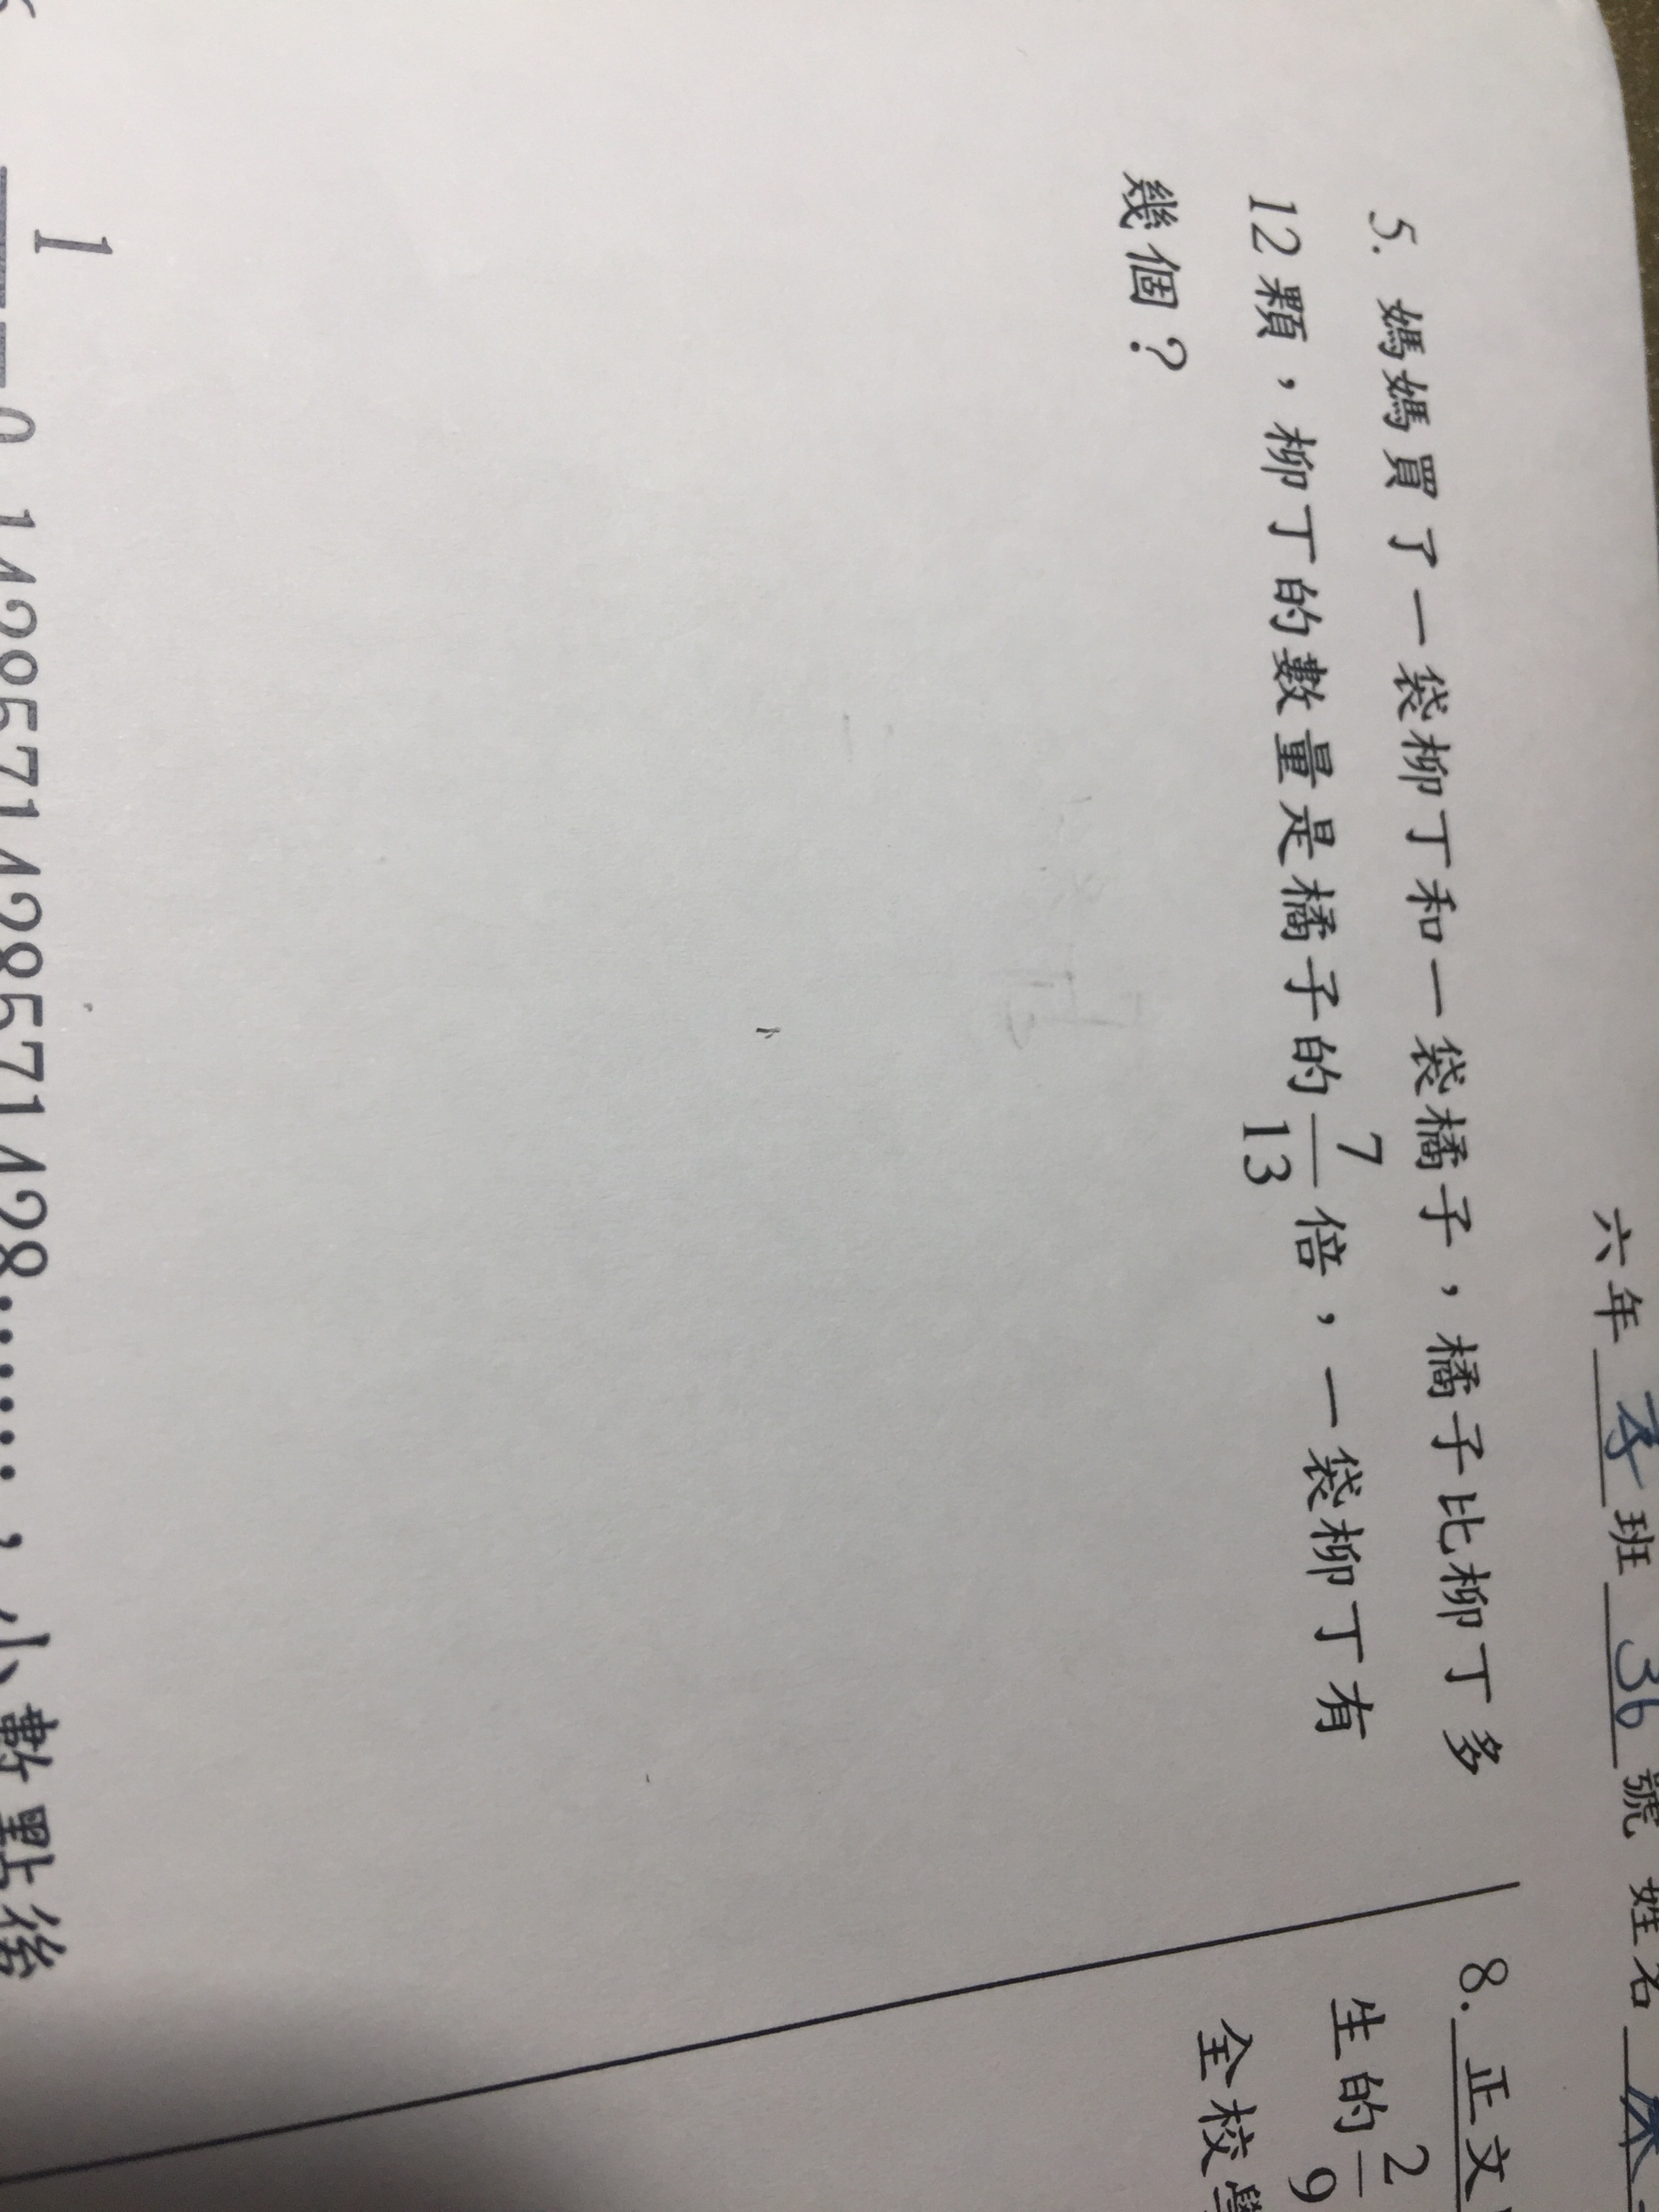 六年 孝 班 36 號 姓名
5. 媽媽買了一袋柳丁和一袋橘子，橘子比柳丁多
12 顆，柳丁的數量是橘子的 7/13 倍，一袋柳丁有
幾個？
8. 正文
生的 2/9
全校
1
0.142857142857142857142８………，小數點後